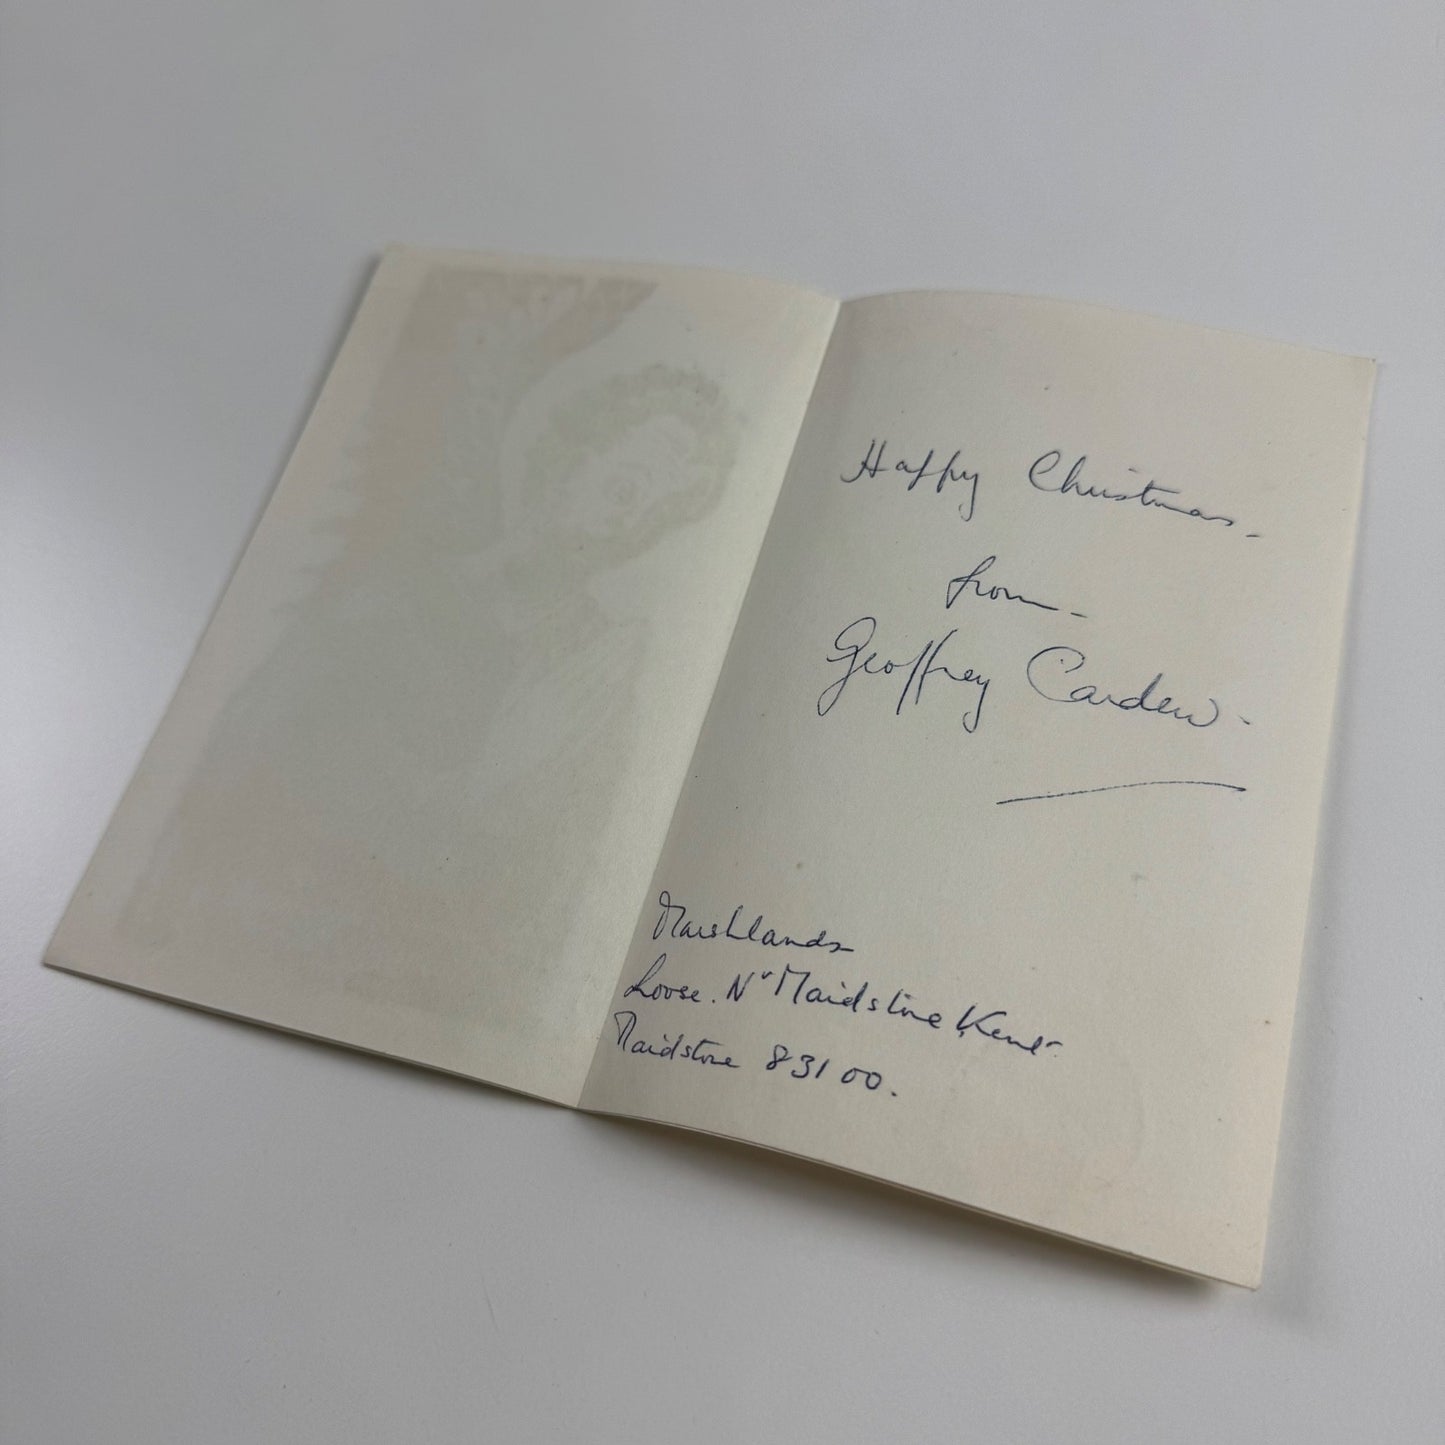 Happy Christmas.
from -
Geoffrey Cardew.
Marshlands
Loose. Nr Maidstone Kent.
Maidstone 83100.